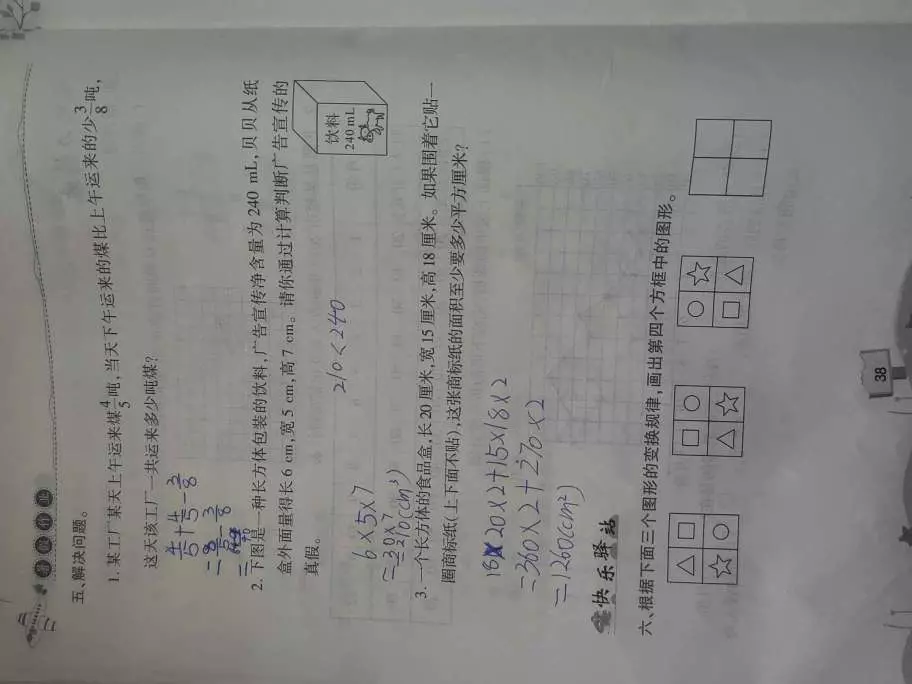 暑假作业
五、解决问题。
1. 某工厂某天上午运来煤4/5吨,当天下午运来的煤比上午运来的少3/8吨,
这天该工厂一共运来多少吨煤?
4/5+4/5-3/8
=8/5-3/8
2. 下图是一种长方体包装的饮料,广告宣传净含量为 240 mL,贝贝从纸
盒外面量得长 6 cm,宽 5 cm,高 7 cm。请你通过计算判断广告宣传的
真假。
饮料
240 mL
6×5×7
=30×7
=210(cm³)
210<240
3. 一个长方体的食品盒,长 20 厘米,宽 15 厘米,高 18 厘米。如果围着它贴一
圈商标纸(上下面不贴),这张商标纸的面积至少要多少平方厘米?
18×20×2+15×18×2
=360×2+270×2
=1260(cm²)
快乐驿站
六、根据下面三个图形的变换规律,画出第四个方框中的图形。
38